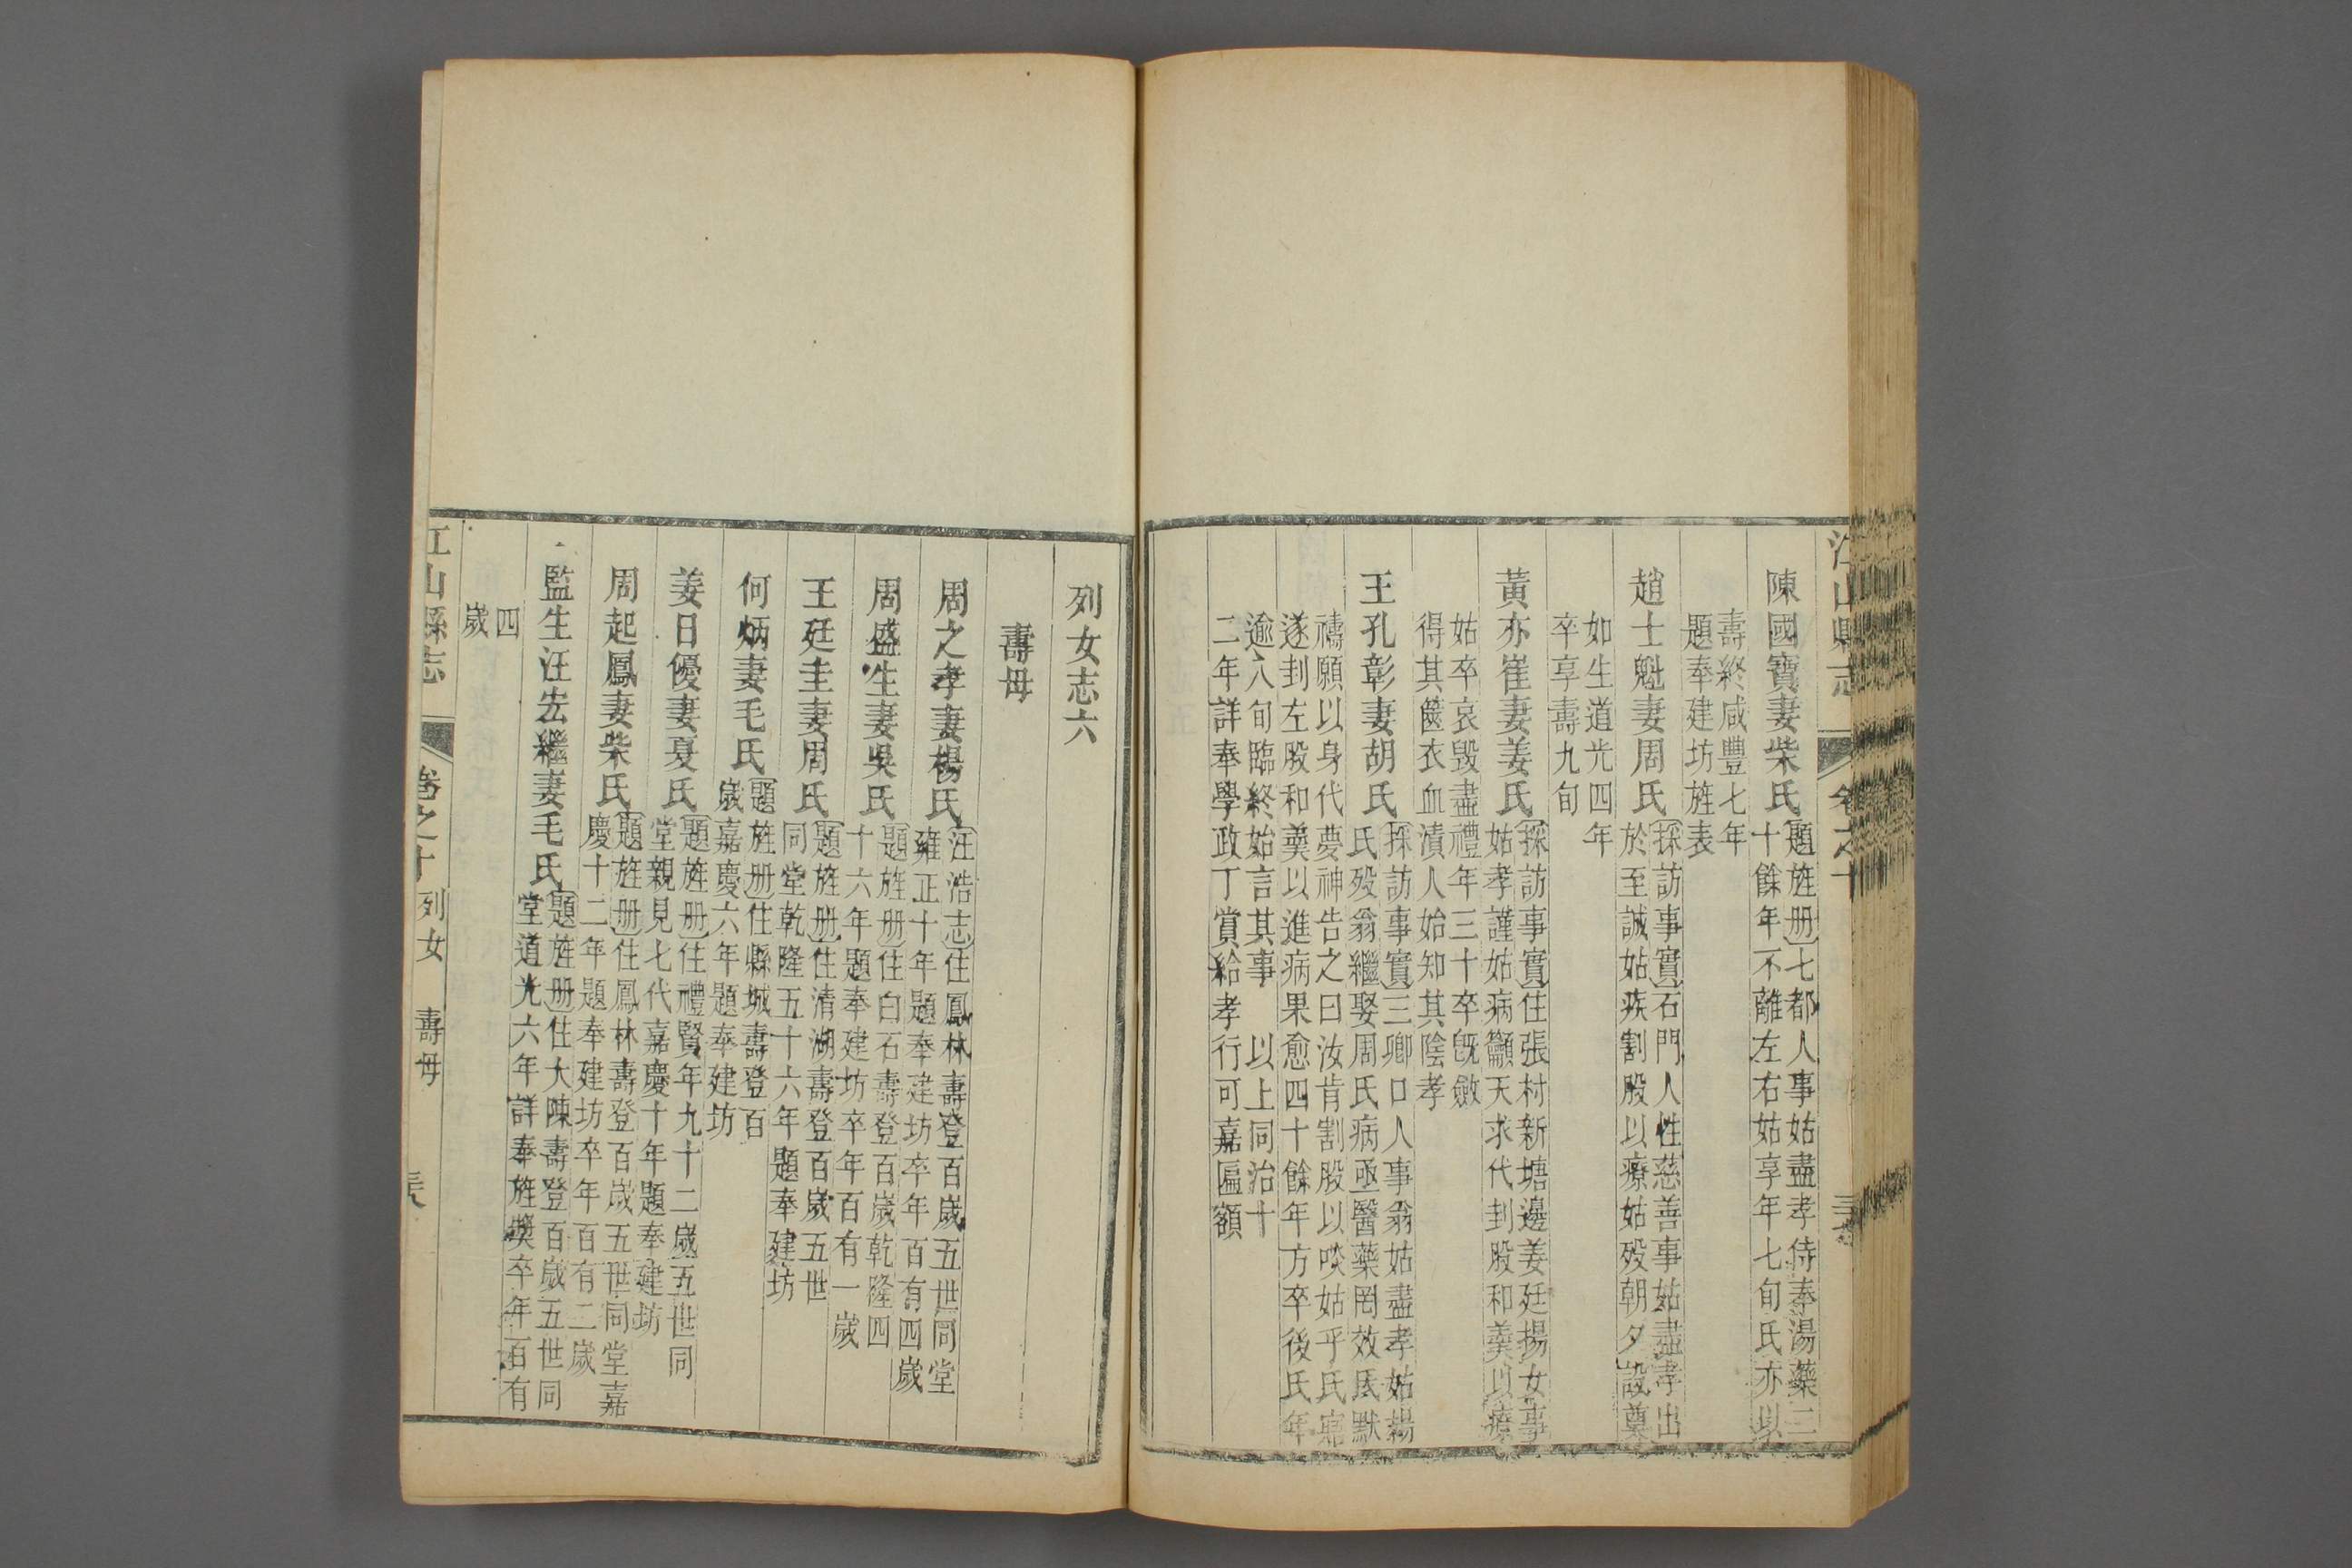 江山縣志
卷之十
陳國寶妻柴氏
題旌册七都人事姑盡孝侍奉湯藥二
十餘年不離左右姑享年七旬氏亦以
壽終咸豐七年
題奉建坊旌表
趙士魁妻周氏
採訪事實石門人性慈善事姑盡孝出
於至誠姑疾割股以療姑歿朝夕設奠
如生道光四年
卒享壽九旬
黃亦崔妻姜氏
採訪事實住張村新塘邊姜廷揚女事
姑孝謹姑病籲天求代刲股和羹以療
姑卒哀毀盡禮年三十卒旣斂
得其篋衣血漬人始知其陰孝
王孔彰妻胡氏
採訪事實三卿口人事翁姑盡孝姑楊
氏歿翁繼娶周氏病亟醫藥罔效氏默
禱願以身代夢神告之曰汝肯割股以啖姑乎氏寤
遂刲左股和羹以進病果愈四十餘年方卒後氏年
逾八旬臨終始言其事　以上同治十
二年詳奉學政丁賞給孝行可嘉匾額
列女志六
壽母
周之孝妻楊氏
汪浩志住鳳林壽登百歲五世同堂
雍正十年題奉建坊卒年百有四歲
周盛生妻吳氏
題旌册住白石壽登百歲乾隆四
十六年題奉建坊卒年百有一歲
王廷圭妻周氏
題旌册住清湖壽登百歲五世
同堂乾隆五十六年題奉建坊
何炳妻毛氏
題旌册住縣城壽登百
歲嘉慶六年題奉建坊
姜日優妻夏氏
題旌册住禮賢年九十二歲五世同
堂親見七代嘉慶十年題奉建坊
周起鳳妻柴氏
題旌册住鳳林壽登百歲五世同堂嘉
慶十二年題奉建坊卒年百有二歲
監生汪宏繼妻毛氏
題旌册住大陳壽登百歲五世同
堂道光六年詳奉旌獎卒年百有
四
歲
江山縣志
卷之十
列女
壽母